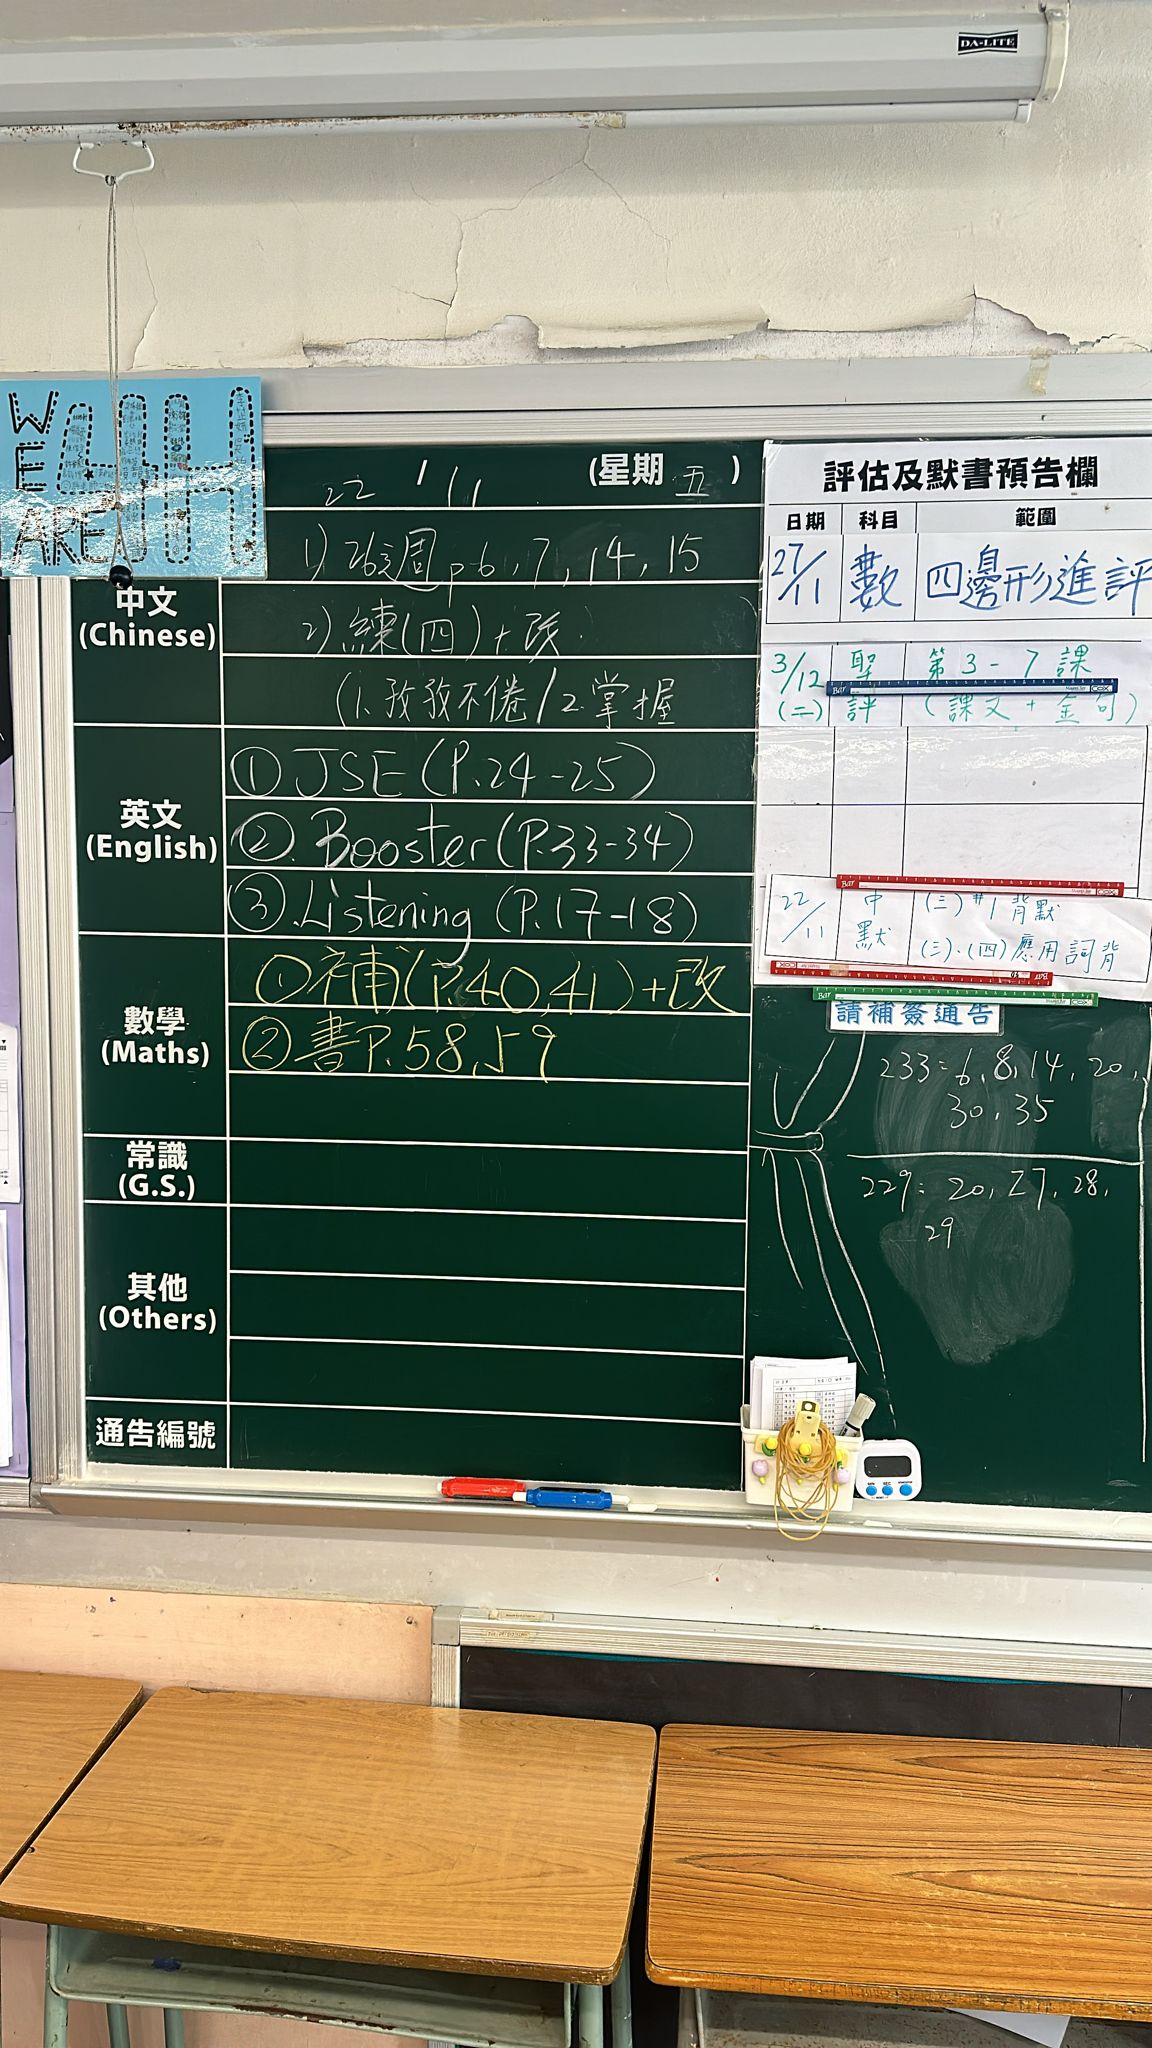 DA-LITE
WE
ARE
4H!
22 / 11 (星期 五 )
中文
(Chinese)
1) 26週 p.6, 7, 14, 15
2) 練(四)+改
(1. 孜孜不倦 / 2. 掌握
英文
(English)
① JSE (P.24-25)
②. Booster (P.33-34)
③. Listening (P.17-18)
數學
(Maths)
① 補(P.40,41)+改
② 書P.58,59
常識
(G.S.)
其他
(Others)
通告編號
評估及默書預告欄
日期 科目 範圍
27/11 數 四邊形進評
3/12 (二) 聖評 第3-7課
(課文+金句)
22/11 中默 (三)#1背默
(三)、(四)應用詞背
請補簽通告
233: 6, 8, 14, 20,
30, 35
229: 20, 27, 28,
29